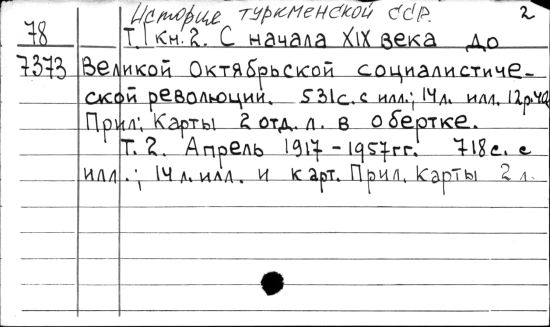 История туркменской ССР. 2
78 Т. 1 кн. 2. С начала XIX века до
7373 Великой Октябрьской социалистиче-
ской революции. 531с. с илл.; 14л. илл. 12р.40
Прил: Карты 2 отд. л. в обертке.
Т. 2. Апрель 1917 - 1957гг. 718с. с
илл.; 14 л. илл. и карт. Прил. Карты 2 л.